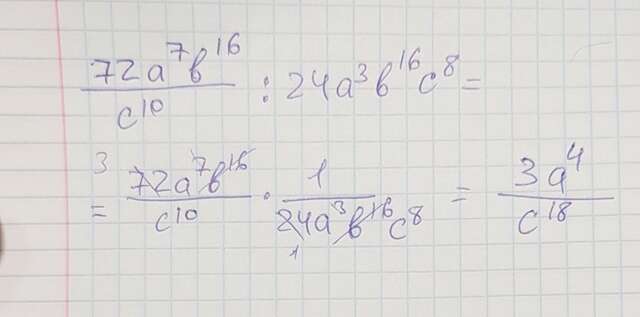 72a⁷b¹⁶/c¹⁰ : 24a³b¹⁶c⁸ =
= ³72a⁷b¹⁶/c¹⁰ · 1/₁24a³b¹⁶c⁸ = 3a⁴/c¹⁸